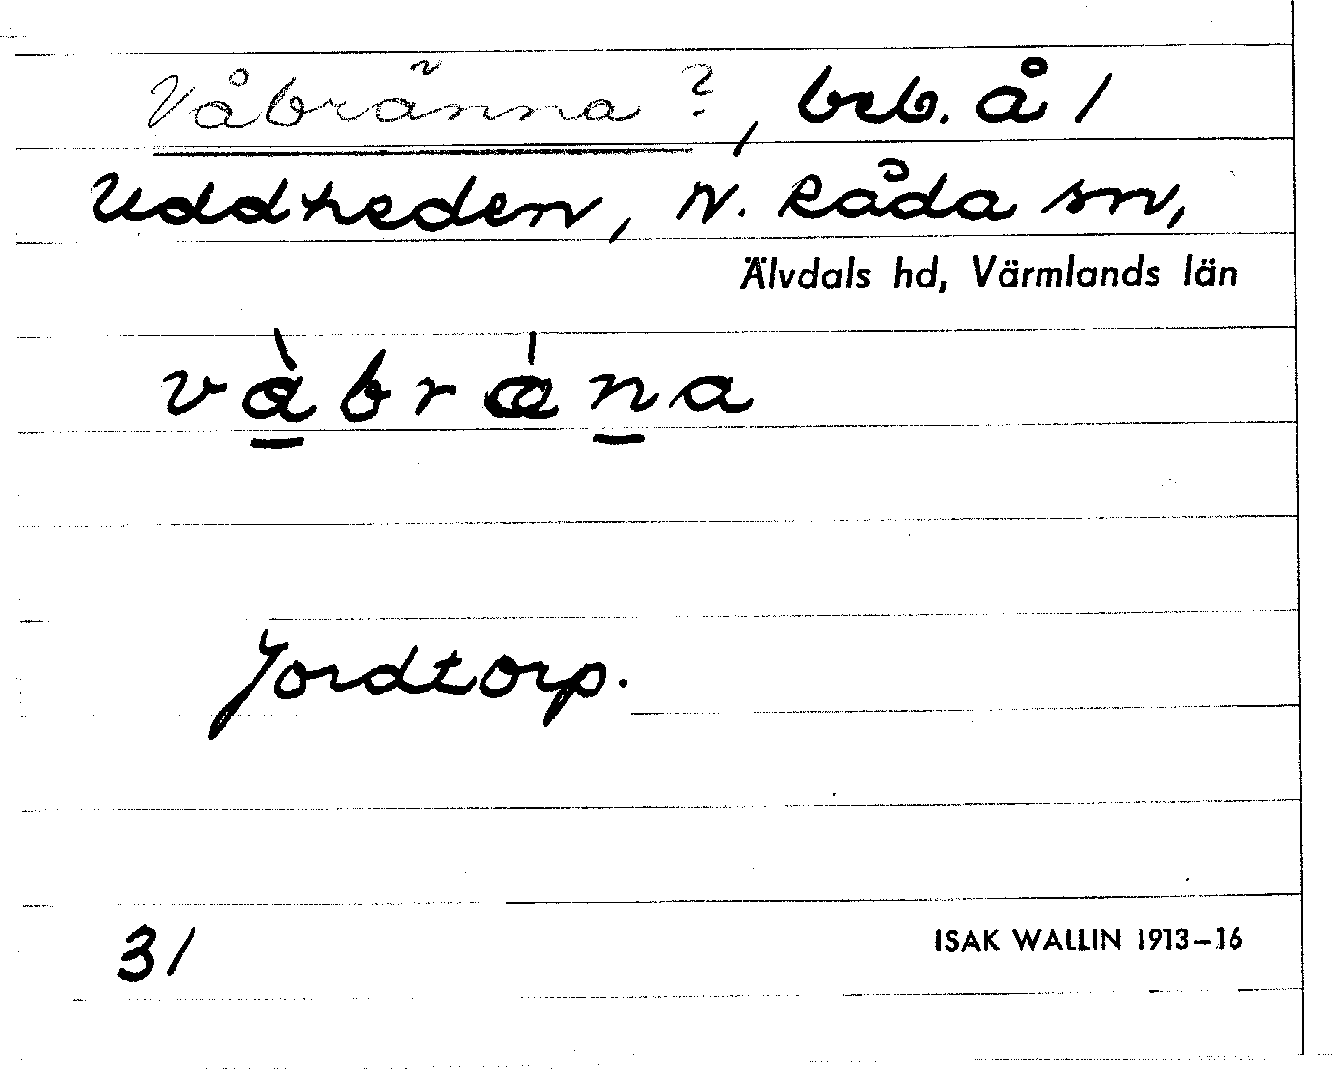 Våbränna ?, beb. å 1
Uddheden, N. Råda sn,
Älvdals hd, Värmlands län
và̱bráṉa
Jordtorp.
31
ISAK WALLIN 1913–16